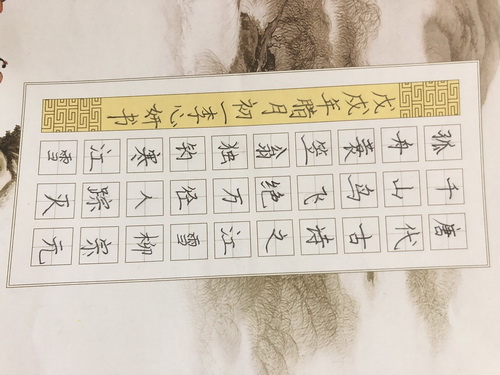 唐代古诗之江雪柳宗元
千山鸟飞绝万径人踪灭
孤舟蓑笠翁独钓寒江雪
戊戌年腊月初一李心妍书